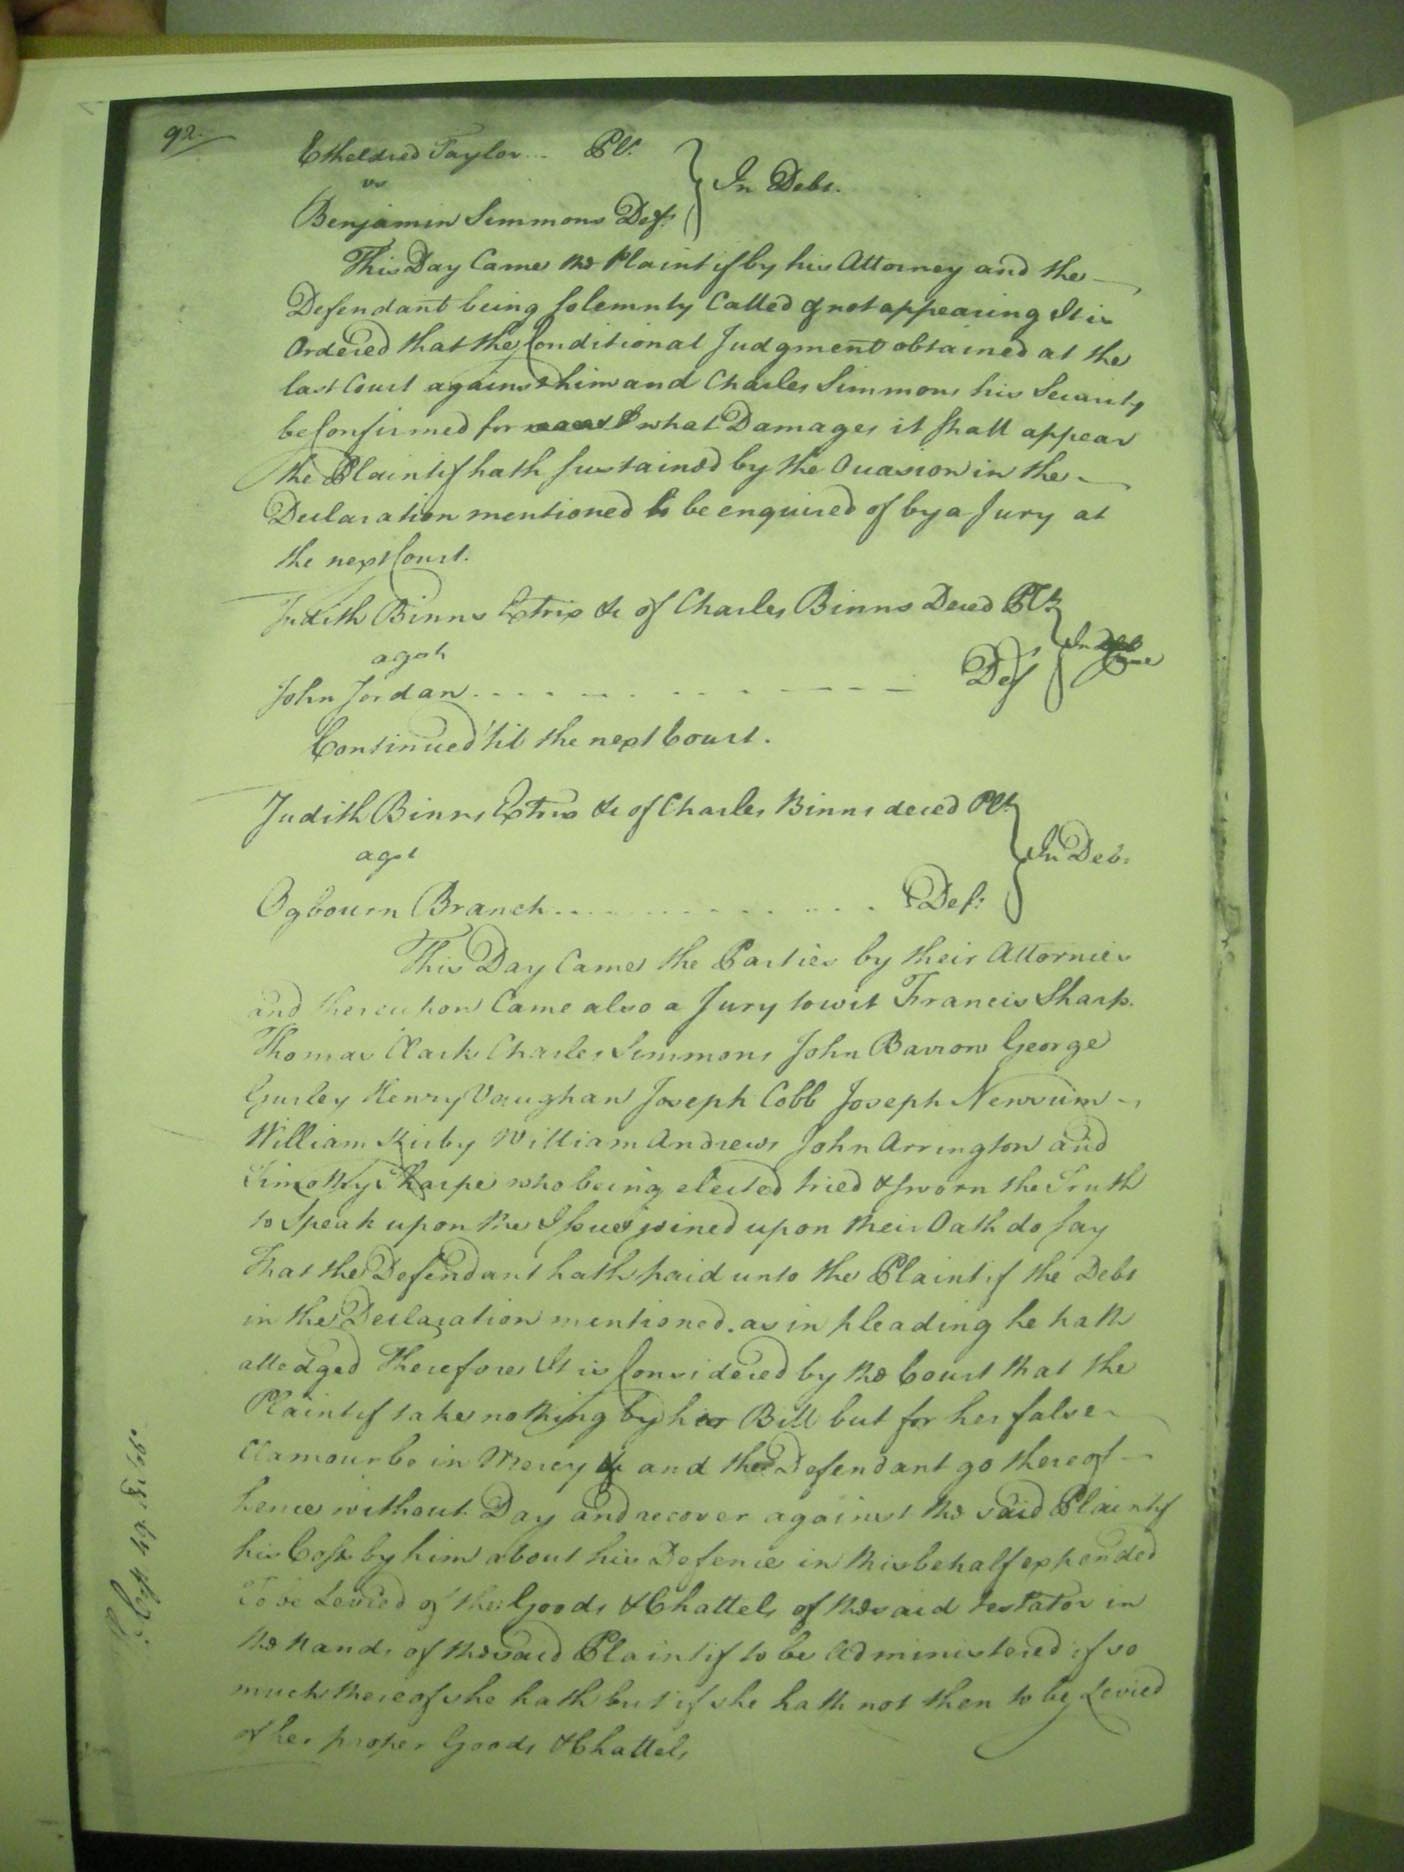 92.
Etheldred Taylor... Plt.
vs
Benjamin Simmons Deft.
In Debt.
This Day Came the Plaintif by his Attorney and the
Defendant being Solemnly Called & not appearing It is
Ordered that the Conditional Judgment obtained at the
last Court against him and Charles Simmons his Security
be Confirmed for what Damages it shall appear
the Plaintif hath sustained by the Occasion in the
Declaration mentioned to be enquired of by a Jury at
the next Court.
Judith Binns Extrix &c of Charles Binns Deced Plt.
agst
John Jordan Def
In
Continued 'til the next Court.
Judith Binns Extrix &c of Charles Binns deced Plt.
agst
Ogbourn Branch Def:
In Debt.
This Day Came the Parties by their Attornies
and thereupon Came also a Jury towit Francis Sharp.
Thomas Clark Charles Simmons John Barrow George
Gurley Henry Vaughan Joseph Cobb Joseph Newsum
William Kirby William Andrews John Arrington and
Timothy Tharpe who being elected tried & sworn the Truth
to Speak upon the Issue joined upon their Oath do say
That the Defendant hath paid unto the Plaintif the Debt
in the Declaration mentioned. as in pleading he hath
alledged Therefore It is Considered by the Court that the
Plaintif take nothing by her Bill but for her false
Clamour be in Mercy &c and the Defendant go thereof
hence without Day and recover against the said Plaintif
his Costs by him about his Defence in this behalf expended
To be Levied of the Goods & Chattels of the said testator in
the hands of the said Plaintif to be administered if so
much thereof she hath but if she hath not then to be Levied
of her proper Goods & Chattels